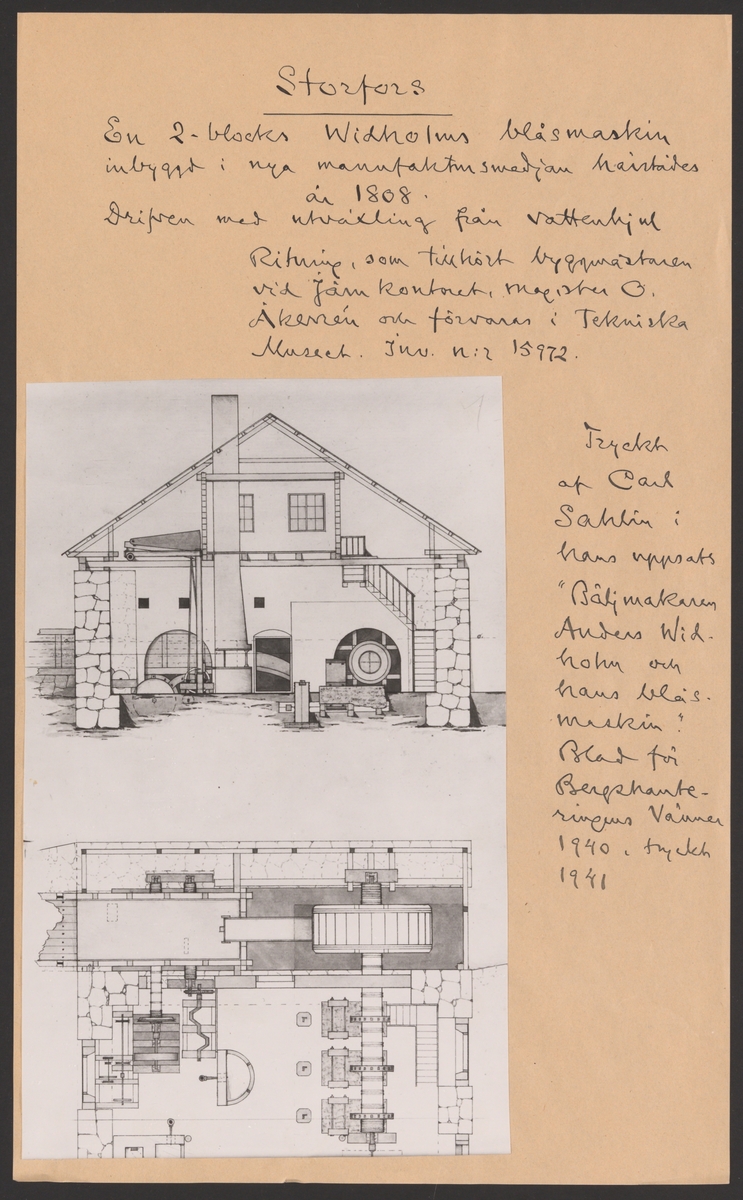 Storfors
En 2-blocks Widholms blåsmaskin
inbyggd i nya manufaktursmedjan härstädes
år 1808.
Drifven med utväxling från vattenhjul
Ritning, som tillhört byggmästaren
vid Järnkontoret, magister O.
Åkerrén och förvaras i Tekniska
Museet. Inv. n:r 15972.
Tryckt
af Carl
Sahlin i
hans uppsats
"Bäljmakaren
Anders Wid-
holm och
hans blås-
maskin".
Blad för
Bergshante-
ringens Vänner
1940, tryckt
1941